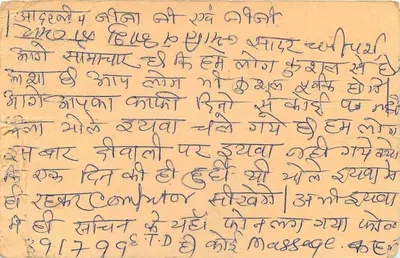 आदरणीय जीजा जी एवं जीजी
सादर चर्णस्पर्श
आगे समाचार है कि हम लोग कुशल से है
आशा है आप लोग भी कुशल होगे
आगे आपका काफी दिनो से कोई पत्र नही
मिला भोले इटावा चले गये है हम लोग
इस बार दीवाली पर इटावा नही गये
एक दिन की ही छुट्टी थी भोले इटावा
ही रहकर Computer सीखेगे। अभी इटावा
मे ही सचिन के यहाँ फोन लग गया फोन
91799 S.T.D है कोई Massage